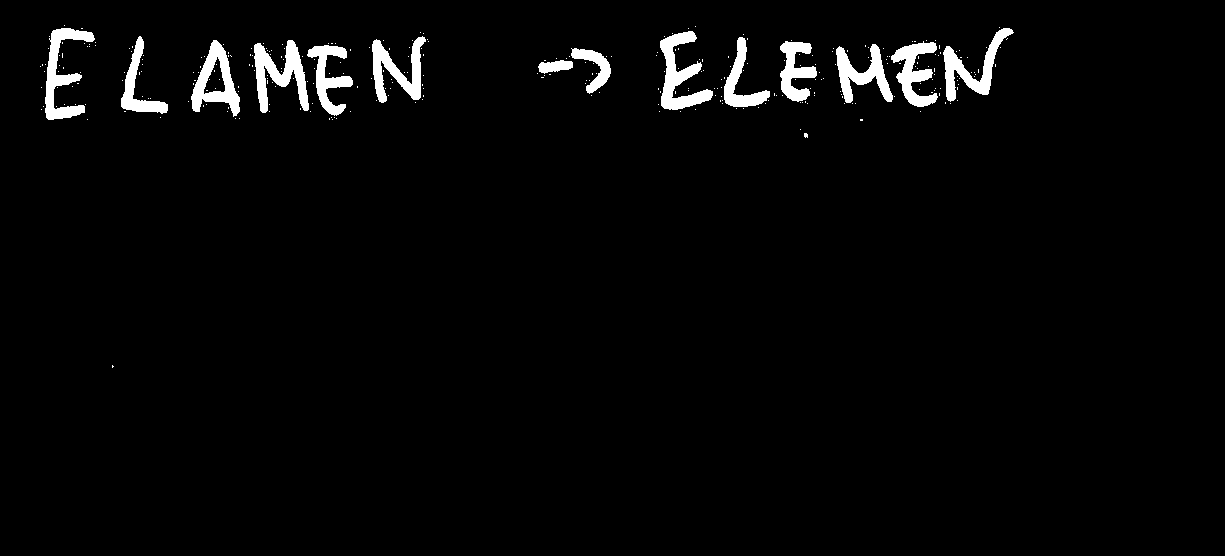 ELAMEN → ELEMEN